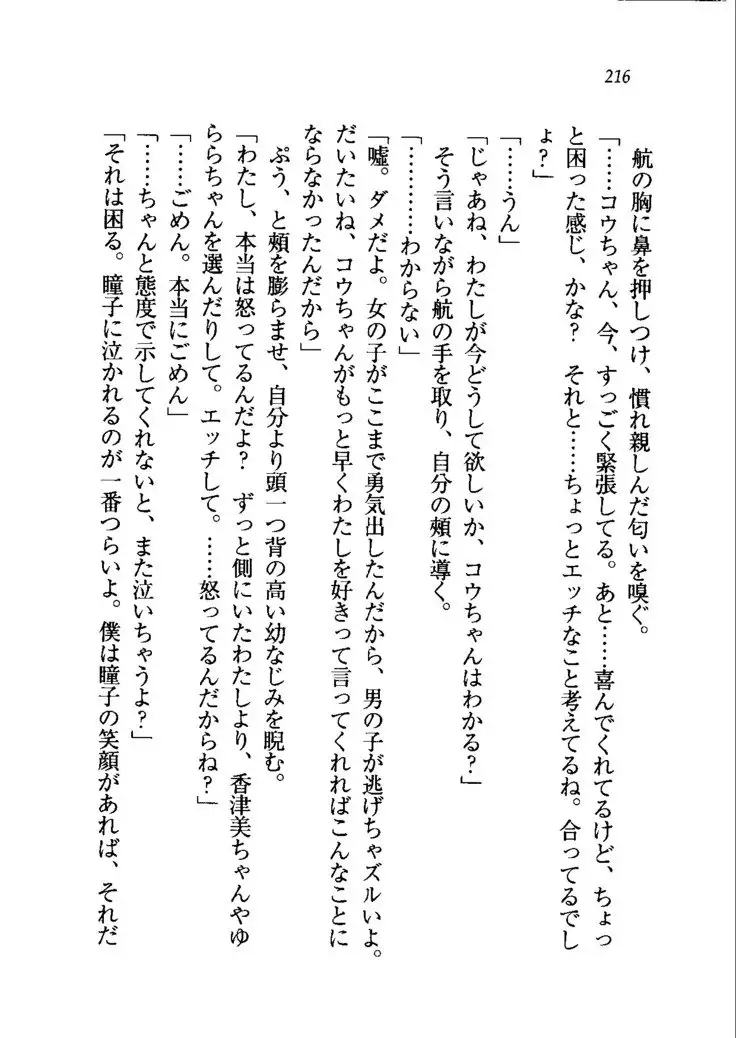 216
航の胸に鼻を押しつけ、慣れ親しんだ匂いを嗅ぐ。
「……コウちゃん、今、すっごく緊張してる。あと……喜んでくれてるけど、ちょっ
と困った感じ、かな？　それと……ちょっとエッチなこと考えてるね。合ってるでし
ょ？」
「……うん」
「じゃあね、わたしが今どうして欲しいか、コウちゃんはわかる？」
そう言いながら航の手を取り、自分の頰に導く。
「…………わからない」
「嘘。ダメだよ。女の子がここまで勇気出したんだから、男の子が逃げちゃズルいよ。
だいたいね、コウちゃんがもっと早くわたしを好きって言ってくれればこんなことに
ならなかったんだから」
ぷう、と頰を膨らませ、自分より頭一つ背の高い幼なじみを睨む。
「わたし、本当は怒ってるんだよ？　ずっと側にいたわたしより、香津美ちゃんやゆ
ららちゃんを選んだりして。エッチして。……怒ってるんだからね？」
「……ごめん。本当にごめん」
「……ちゃんと態度で示してくれないと、また泣いちゃうよ？」
「それは困る。瞳子に泣かれるのが一番つらいよ。僕は瞳子の笑顔があれば、それだ